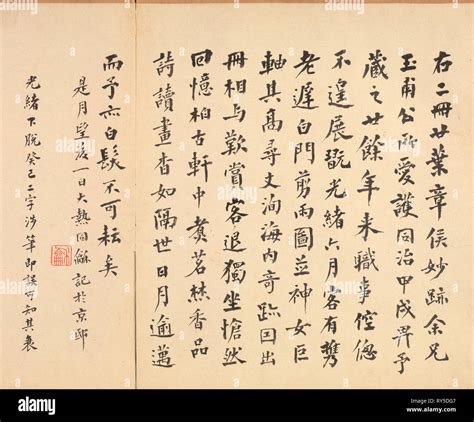 右二冊廿葉章侯妙跡余兄
玉甫公所愛護同治甲戌畀予
藏之廿餘年来職事倥傯
不遑展翫光緒六月客有携
老遲白門剪雨圖並神女巨
軸其高尋丈洵海内奇跡因出
冊相与歎賞客退獨坐愴然
回憶柏古軒中煑茗焚香品
詩讀畫杳如隔世日月逾邁
而予亦白髮不可耘矣
是月望後一日大熱同龢記於京邸
光緒下脱癸巳二字涉筆即誤可知其衰
alamy